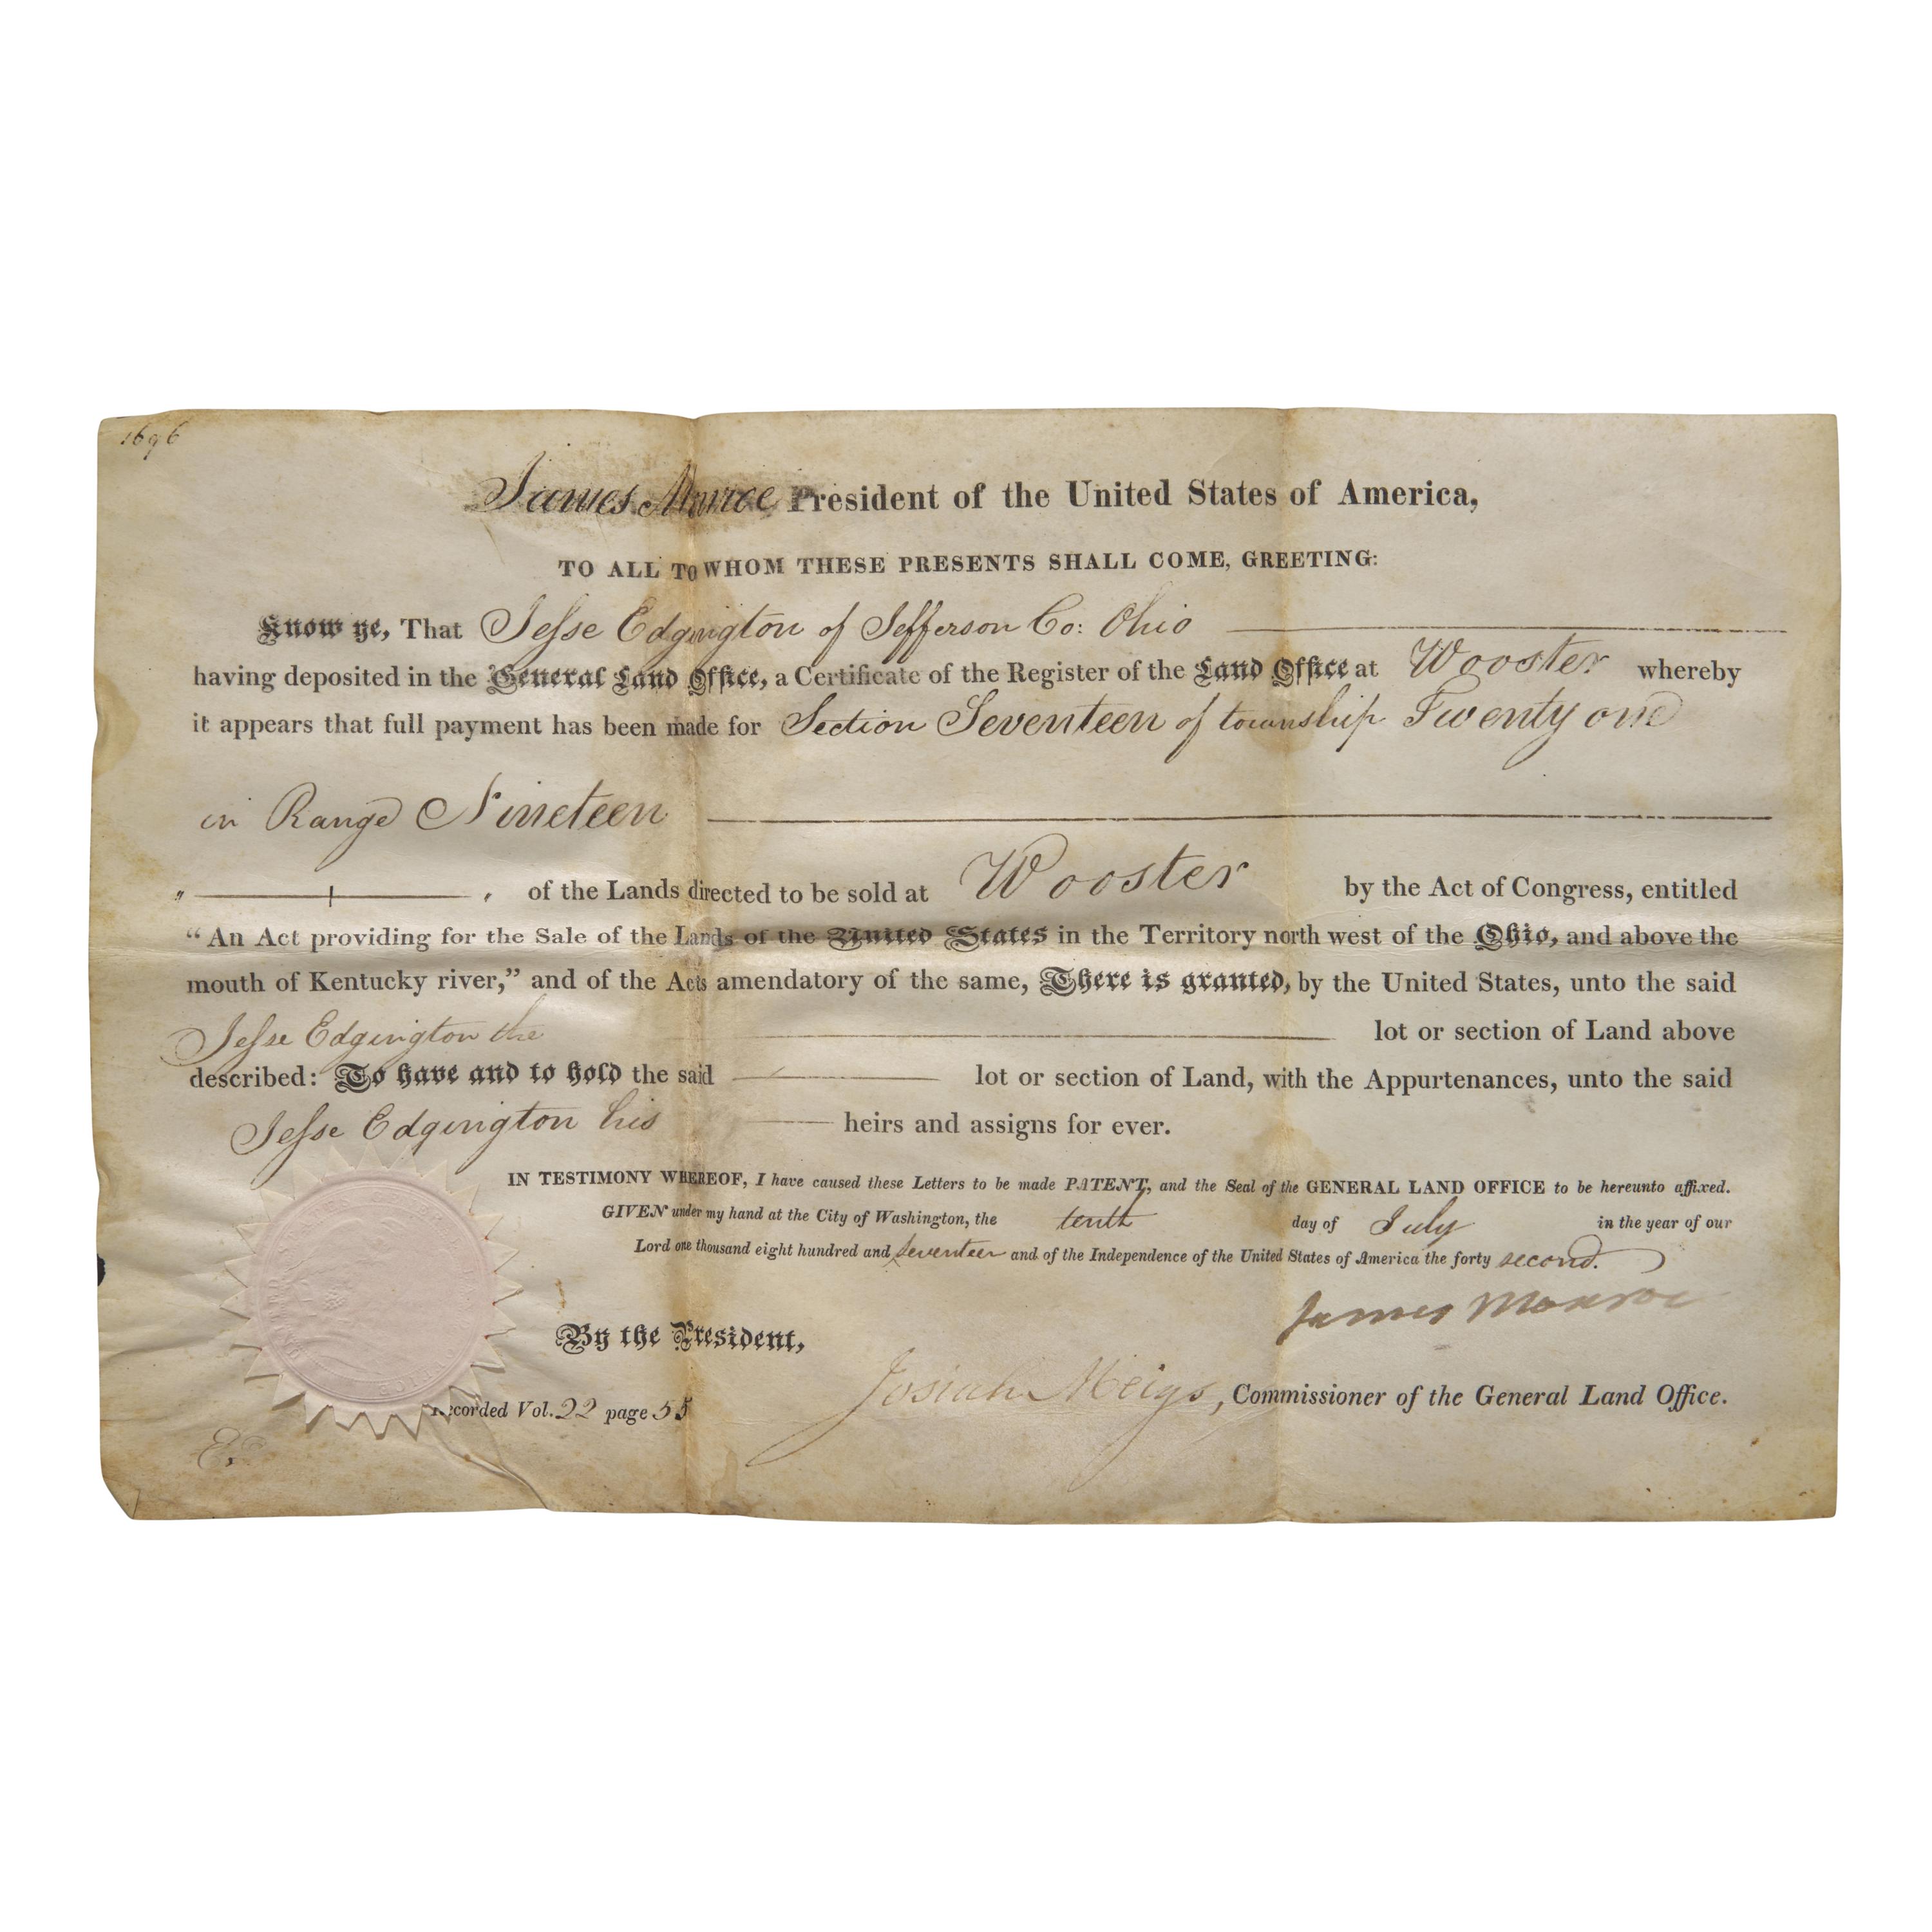 1696
James Monroe President of the United States of America,
TO ALL TO WHOM THESE PRESENTS SHALL COME, GREETING:
Know ye, That Jesse Edgington of Jefferson Co: Ohio
having deposited in the General Land Office, a Certificate of the Register of the Land Office at Wooster whereby
it appears that full payment has been made for Section Seventeen of township Twenty one
in Range Nineteen
of the Lands directed to be sold at Wooster by the Act of Congress, entitled
“An Act providing for the Sale of the Lands of the United States in the Territory north west of the Ohio, and above the
mouth of Kentucky river,” and of the Acts amendatory of the same, There is granted, by the United States, unto the said
Jesse Edgington the lot or section of Land above
described: To have and to hold the said lot or section of Land, with the Appurtenances, unto the said
Jesse Edgington his heirs and assigns for ever.
IN TESTIMONY WHEREOF, I have caused these Letters to be made PATENT, and the Seal of the GENERAL LAND OFFICE to be hereunto affixed.
GIVEN under my hand at the City of Washington, the tenth day of July in the year of our
Lord one thousand eight hundred and seventeen and of the Independence of the United States of America the forty second.
James Monroe
By the President,
Josiah Meigs, Commissioner of the General Land Office.
Recorded Vol. 22 page 55